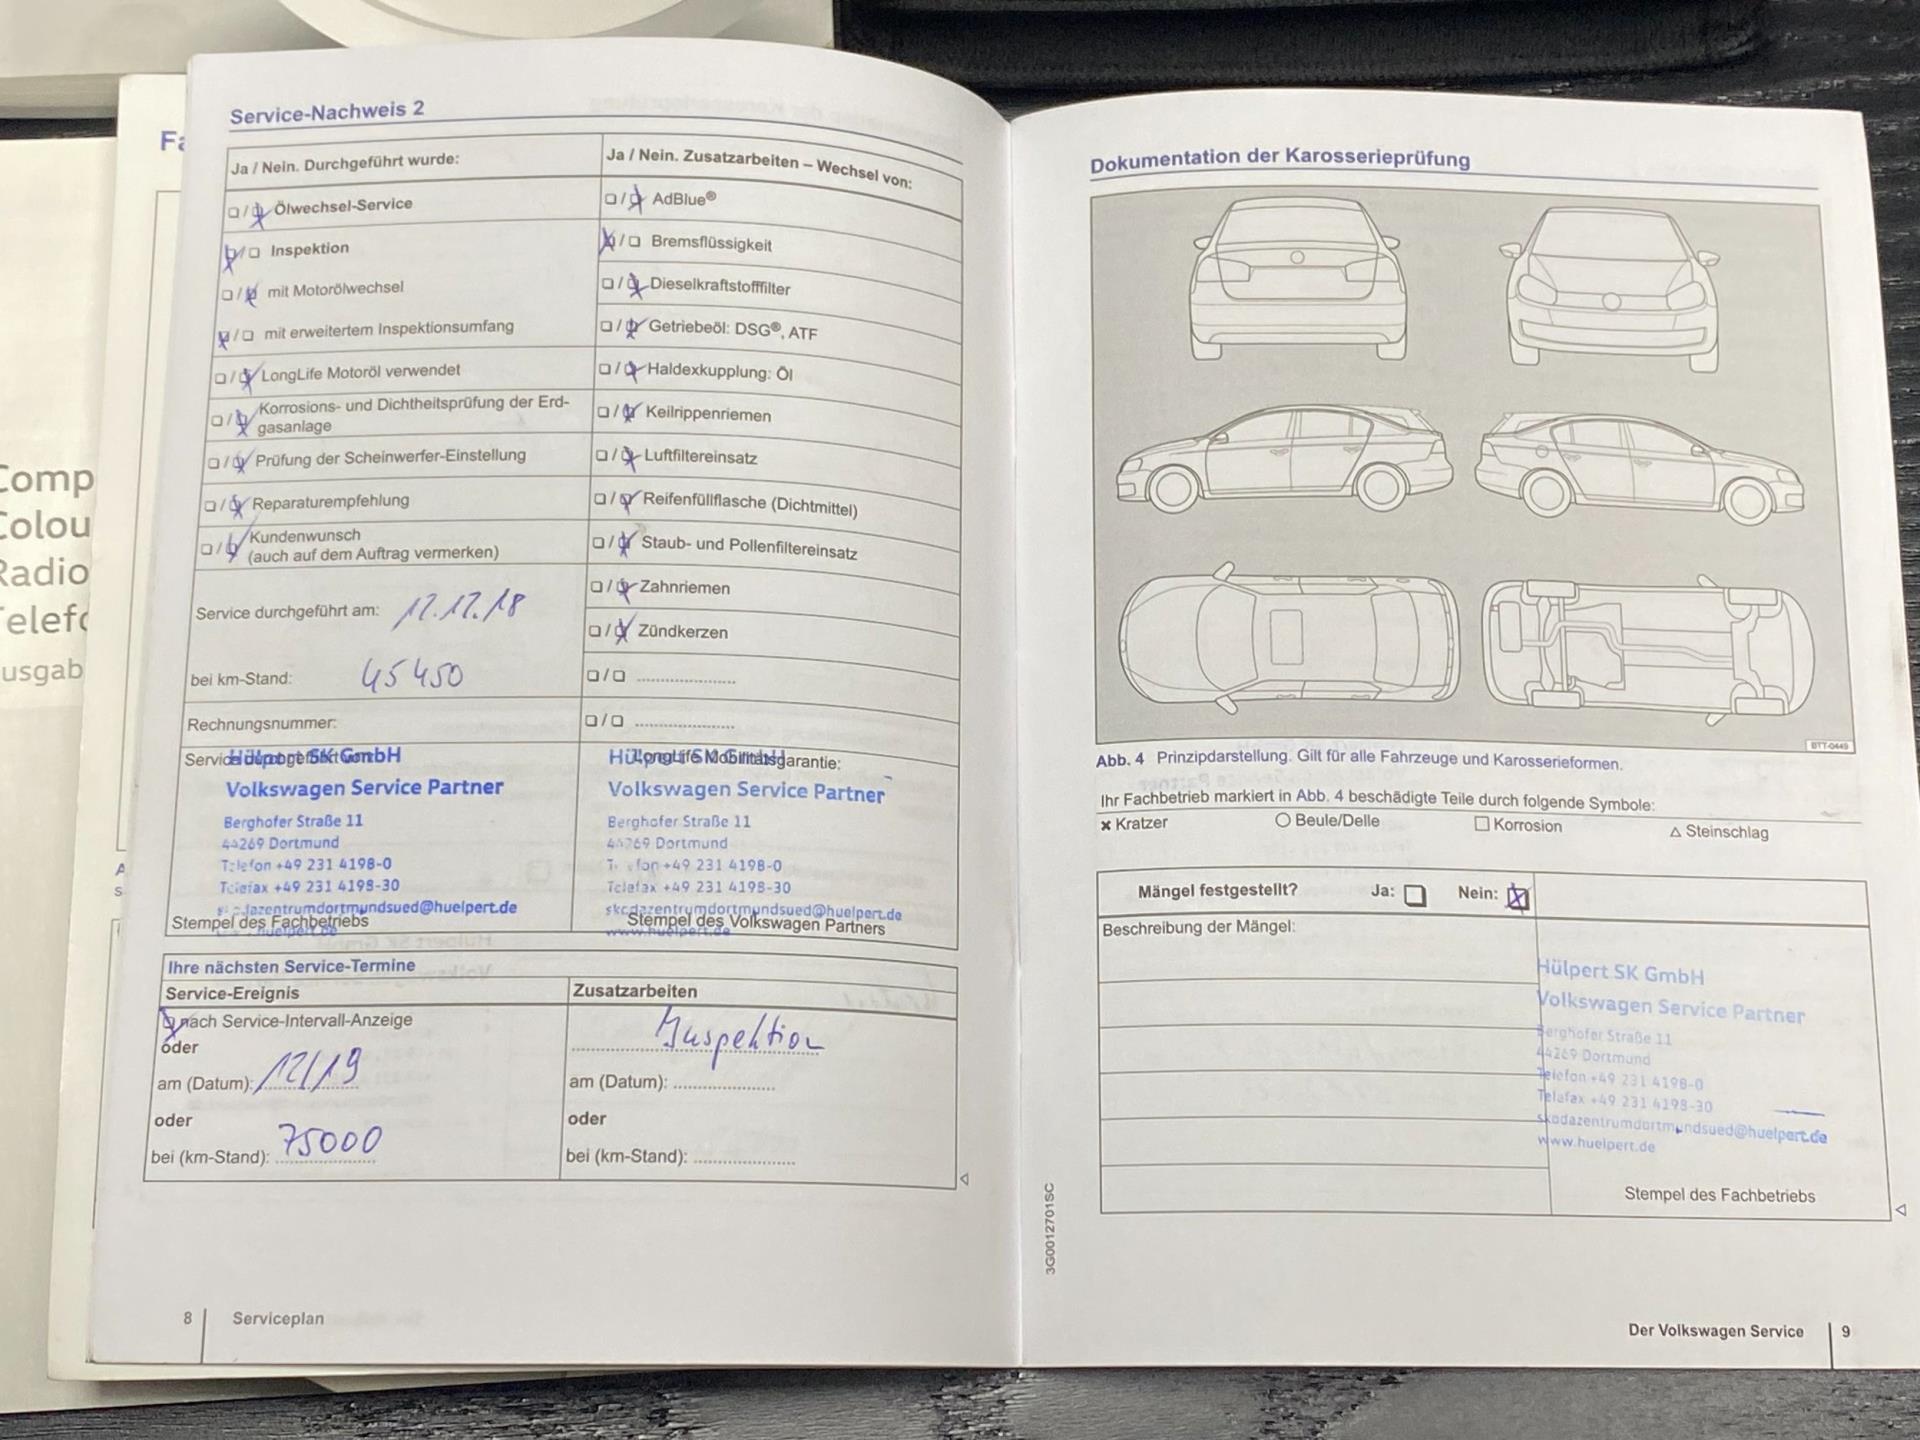 Comp
Colou
Radio
Telefo
usgab
Fa
Service-Nachweis 2
Ja / Nein. Durchgeführt wurde:
Ölwechsel-Service
Inspektion
mit Motorölwechsel
mit erweitertem Inspektionsumfang
LongLife Motoröl verwendet
Korrosions- und Dichtheitsprüfung der Erd-
gasanlage
Prüfung der Scheinwerfer-Einstellung
Reparaturempfehlung
Kundenwunsch
(auch auf dem Auftrag vermerken)
Service durchgeführt am: 12.12.18
bei km-Stand: 45450
Rechnungsnummer:
Hülpert SK GmbH
Volkswagen Service Partner
Berghofer Straße 11
44269 Dortmund
Telefon +49 231 4198-0
Telefax +49 231 4198-30
skodazentrumdortmundsued@huelpert.de
Stempel des Fachbetriebs
www.huelpert.de
Ja / Nein. Zusatzarbeiten – Wechsel von:
AdBlue®
Bremsflüssigkeit
Dieselkraftstofffilter
Getriebeöl: DSG®, ATF
Haldexkupplung: Öl
Keilrippenriemen
Luftfiltereinsatz
Reifenfüllflasche (Dichtmittel)
Staub- und Pollenfiltereinsatz
Zahnriemen
Zündkerzen
LongLife Mobilitätsgarantie:
Hülpert SK GmbH
Volkswagen Service Partner
Berghofer Straße 11
44269 Dortmund
Telefon +49 231 4198-0
Telefax +49 231 4198-30
skodazentrumdortmundsued@huelpert.de
Stempel des Volkswagen Partners
www.huelpert.de
Ihre nächsten Service-Termine
Service-Ereignis
nach Service-Intervall-Anzeige
oder
am (Datum): 12/19
oder
bei (km-Stand): 75000
Zusatzarbeiten
Inspektion
am (Datum):
oder
bei (km-Stand):
8 Serviceplan
Dokumentation der Karosserieprüfung
BTT-0449
Abb. 4 Prinzipdarstellung. Gilt für alle Fahrzeuge und Karosserieformen.
Ihr Fachbetrieb markiert in Abb. 4 beschädigte Teile durch folgende Symbole:
Kratzer Beule/Delle Korrosion Steinschlag
Mängel festgestellt? Ja: Nein:
Beschreibung der Mängel:
Hülpert SK GmbH
Volkswagen Service Partner
Berghofer Straße 11
44269 Dortmund
Telefon +49 231 4198-0
Telefax +49 231 4198-30
skodazentrumdortmundsued@huelpert.de
www.huelpert.de
Stempel des Fachbetriebs
3G0012701SC
Der Volkswagen Service 9